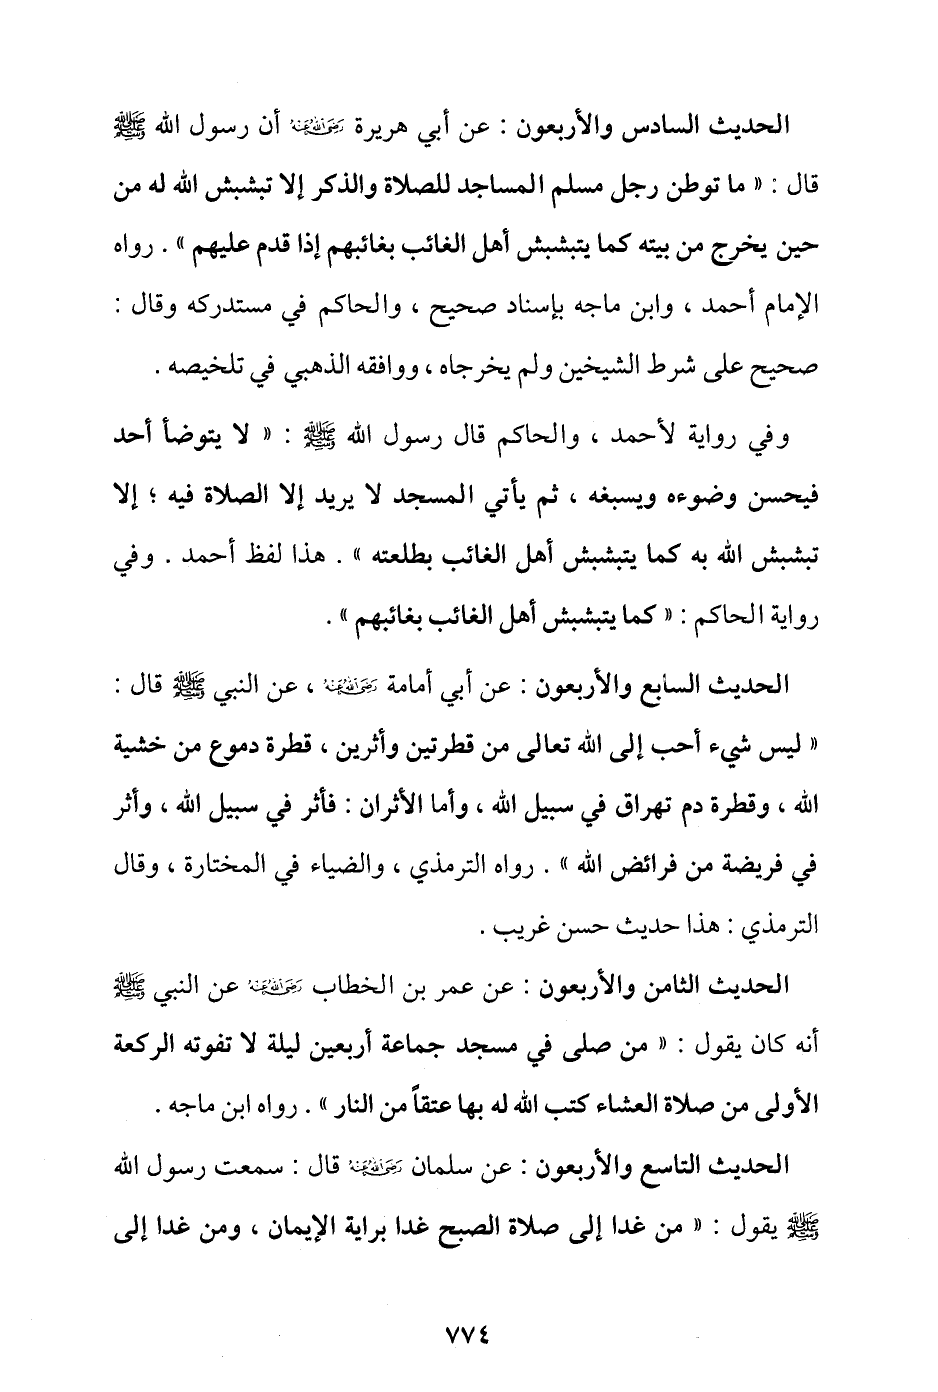 الحديث السادس والأربعون : عن أبي هريرة رضي الله عنه أن رسول الله ﷺ
قال : « ما توطن رجل مسلم المساجد للصلاة والذكر إلا تبشبش الله له من
حين يخرج من بيته كما يتبشبش أهل الغائب بغائبهم إذا قدم عليهم » . رواه
الإمام أحمد ، وابن ماجه بإسناد صحيح ، والحاكم في مستدركه وقال :
صحيح على شرط الشيخين ولم يخرجاه ، ووافقه الذهبي في تلخيصه .
وفي رواية لأحمد ، والحاكم قال رسول الله ﷺ : « لا يتوضأ أحد
فيحسن وضوءه ويسبغه ، ثم يأتي المسجد لا يريد إلا الصلاة فيه ؛ إلا
تبشبش الله به كما يتبشبش أهل الغائب بطلعته » . هذا لفظ أحمد . وفي
رواية الحاكم : « كما يتبشبش أهل الغائب بغائبهم » .
الحديث السابع والأربعون : عن أبي أمامة رضي الله عنه ، عن النبي ﷺ قال :
« ليس شيء أحب إلى الله تعالى من قطرتين وأثرين ، قطرة دموع من خشية
الله ، وقطرة دم تهراق في سبيل الله ، وأما الأثران : فأثر في سبيل الله ، وأثر
في فريضة من فرائض الله » . رواه الترمذي ، والضياء في المختارة ، وقال
الترمذي : هذا حديث حسن غريب .
الحديث الثامن والأربعون : عن عمر بن الخطاب رضي الله عنه عن النبي ﷺ
أنه كان يقول : « من صلى في مسجد جماعة أربعين ليلة لا تفوته الركعة
الأولى من صلاة العشاء كتب الله له بها عتقاً من النار » . رواه ابن ماجه .
الحديث التاسع والأربعون : عن سلمان رضي الله عنه قال : سمعت رسول الله
ﷺ يقول : « من غدا إلى صلاة الصبح غدا براية الإيمان ، ومن غدا إلى
٧٧٤